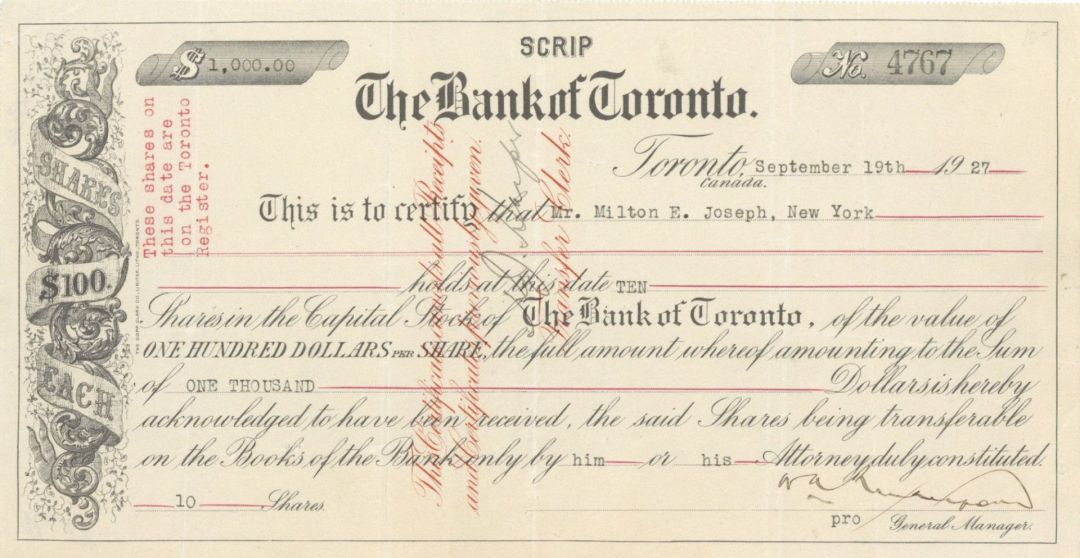 SCRIP
$ 1,000.00
No. 4767
The Bank of Toronto.
Toronto, September 19th 1927
Canada.
This is to certify that Mr. Milton E. Joseph, New York
holds at this date TEN
Shares in the Capital Stock of The Bank of Toronto, of the value of
ONE HUNDRED DOLLARS PER SHARE, the full amount whereof amounting to the Sum
of ONE THOUSAND Dollars is hereby
acknowledged to have been received, the said Shares being transferable
on the Books of the Bank only by him or his Attorney duly constituted.
10 Shares.
pro General Manager.
SHARES
$100.
EACH
These shares on
this date are
on the Toronto
Register.
This Certificate cancels all Receipts
and Certificates previously given.
Transfer Clerk.